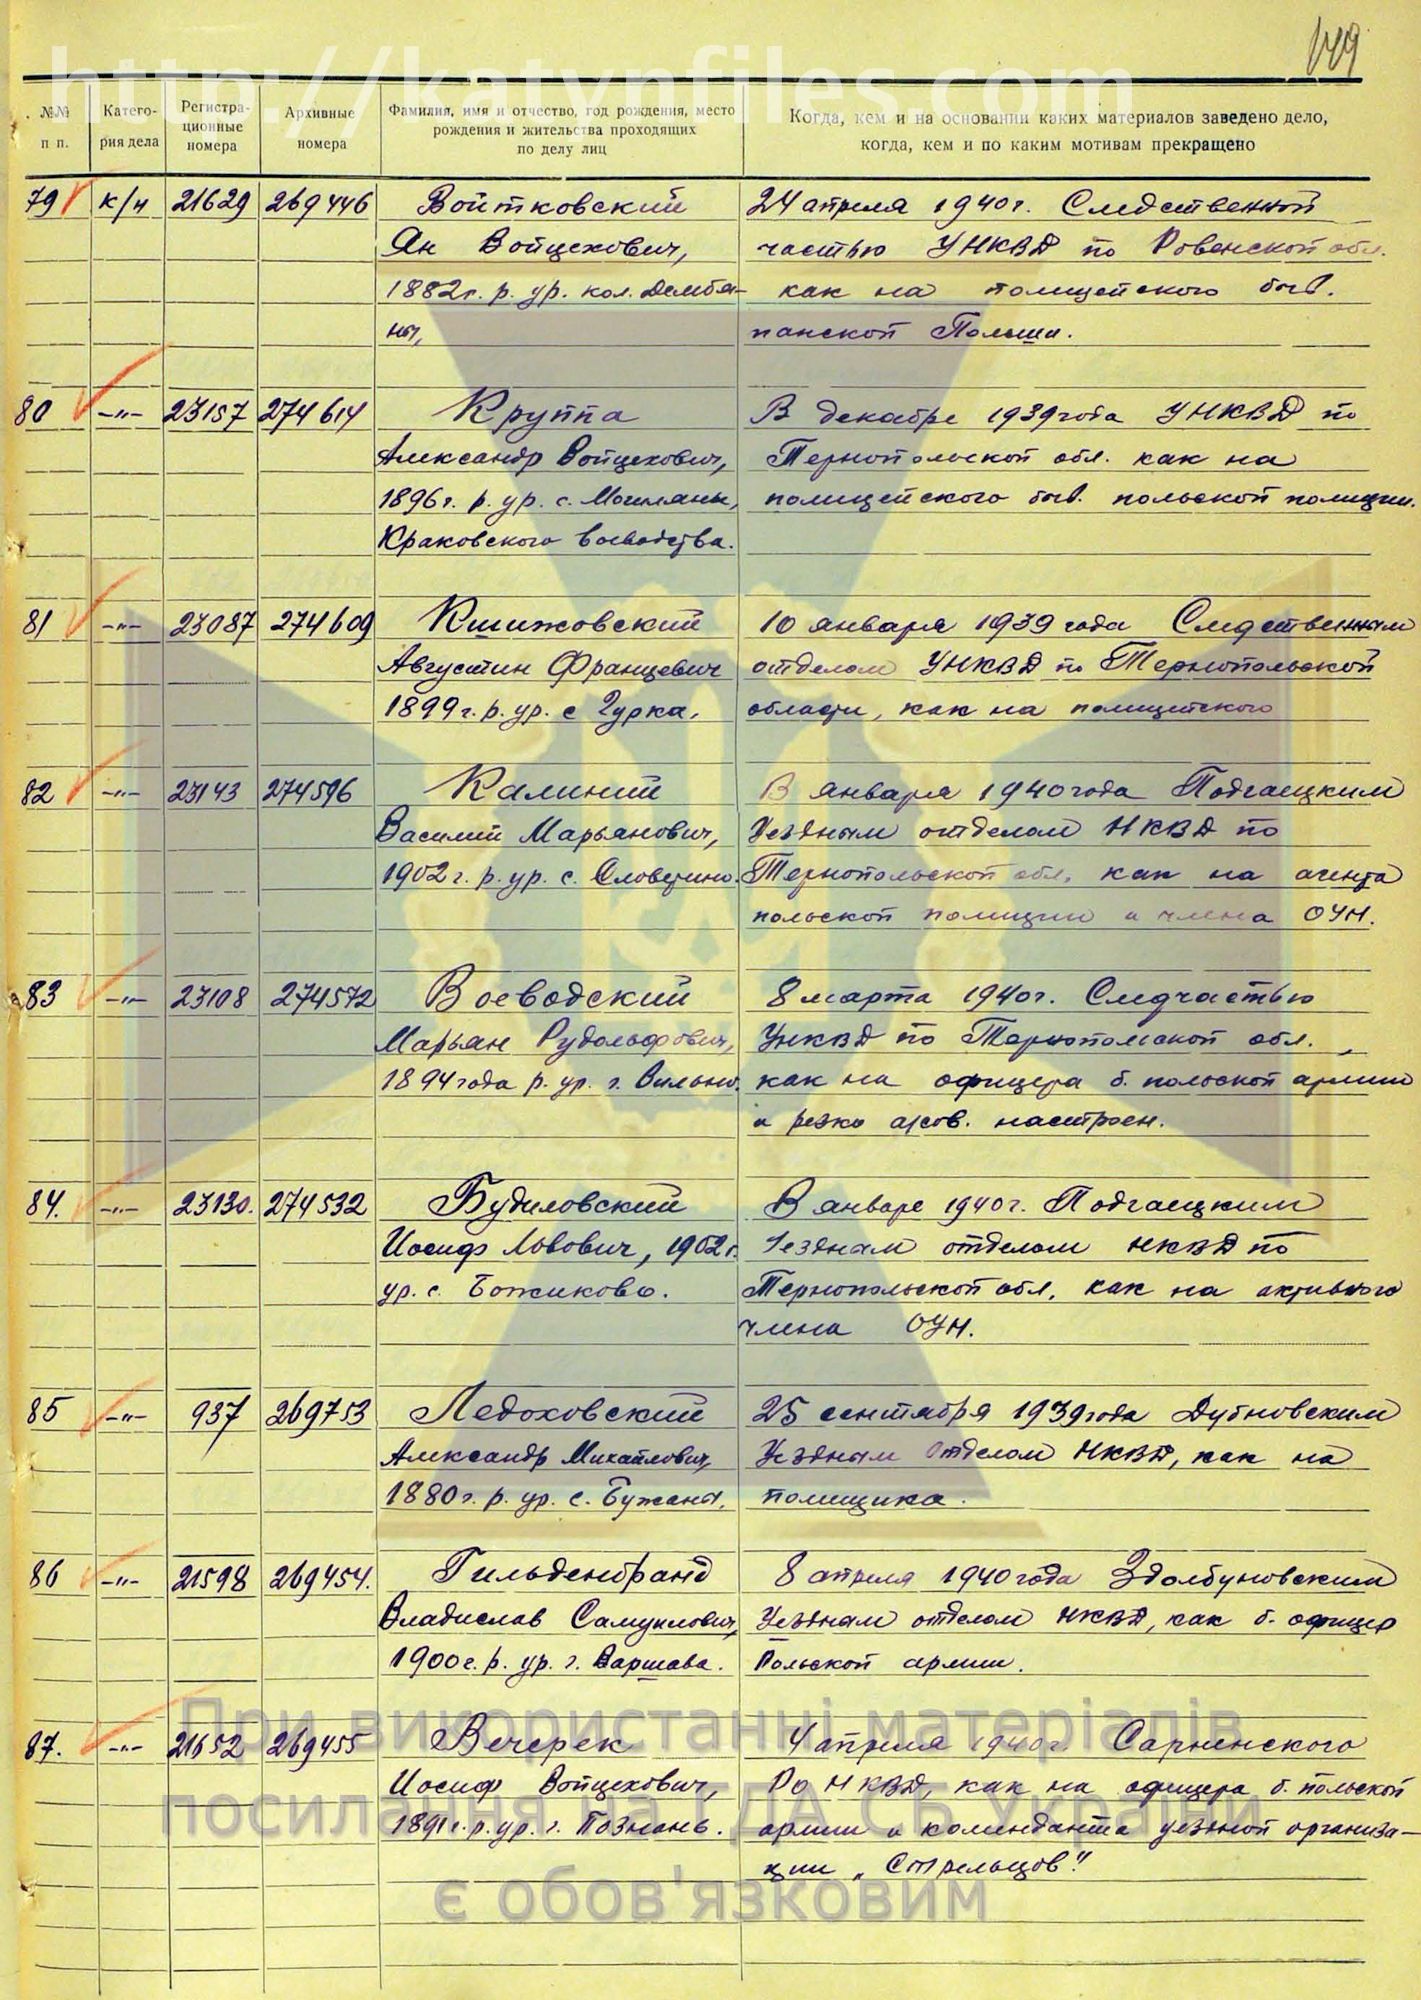 http://katynfiles.com
149
№№ п п.
Катего-рия дела
Регистра-ционные номера
Архивные номера
Фамилия, имя и отчество, год рождения, место рождения и жительства проходящих по делу лиц
Когда, кем и на основании каких материалов заведено дело, когда, кем и по каким мотивам прекращено
79 к/ч 21629 269446 Войтковский 24 апреля 1940г. Следственной
Ян Войцехович, частью УНКВД по Ровенской обл.
1882г. р. ур. кол. Дембя- как на полицейского быв.
ны, панской Польши.
80 -"- 23157 274614 Круппа В декабре 1939 года УНКВД по
Александр Войцехович, Тернопольской обл. как на
1896г. р. ур. с. Могиляны, полицейского быв. польской полиции.
Краковского воеводства.
81 -"- 23087 274609 Кшижовский 10 января 1939 года Следственным
Августин Францевич отделом УНКВД по Тернопольской
1899г. р. ур. с Гурка, области, как на полицейского
82 -"- 23143 274596 Калиний В января 1940 года Подгаецким
Василий Марьянович, Уездным отделом НКВД по
1902г. р. ур. с. Словетино. Тернопольской обл, как на агента
польской полиции и члена ОУН.
83 -"- 23108 274572 Воеводский 8 марта 1940г. Следчастью
Марьян Рудольфович, УНКВД по Тернопольской обл.,
1894 года р. ур. г. Вильно. как на офицера б. польской армии
и резко а/сов. настроен.
84. -"- 23130. 274532 Будиловский В январе 1940г. Подгаецким
Иосиф Львович, 1902г. Уездным отделом НКВД по
ур. с. Божиково. Тернопольской обл, как на активного
члена ОУН.
85 -"- 937 269753 Ледоховский 25 сентября 1939 года Дубновским
Александр Михайлович, Уездным Отделом НКВД, как на
1880г. р. ур. с. Бужаны, помещика.
86 -"- 21598 269454. Гильденбранд 8 апреля 1940 года Здолбуновским
Владислав Самуилович, Уездным отделом НКВД, как б. офицер
1900г. р. ур. г. Варшава. Польской армии.
87. -"- 21652 269455 Вечерек 4 апреля 1940г. Сарненского
Иосиф Войцехович, РО НКВД, как на офицера б. польской
1891г. р. ур. г. Познань. армии и коменданта уездной организа-
ции „Стрельцов".
При використанні матеріалів
посилання на ГДА СБ України
є обов'язковим